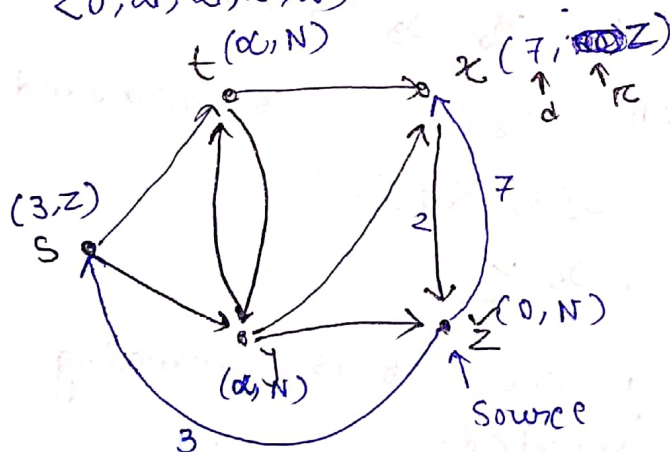 t (α, N)
x (7, Z)
d
π
(3, Z)
S
7
2
(0, N)
Z
y
(α, N)
Source
3